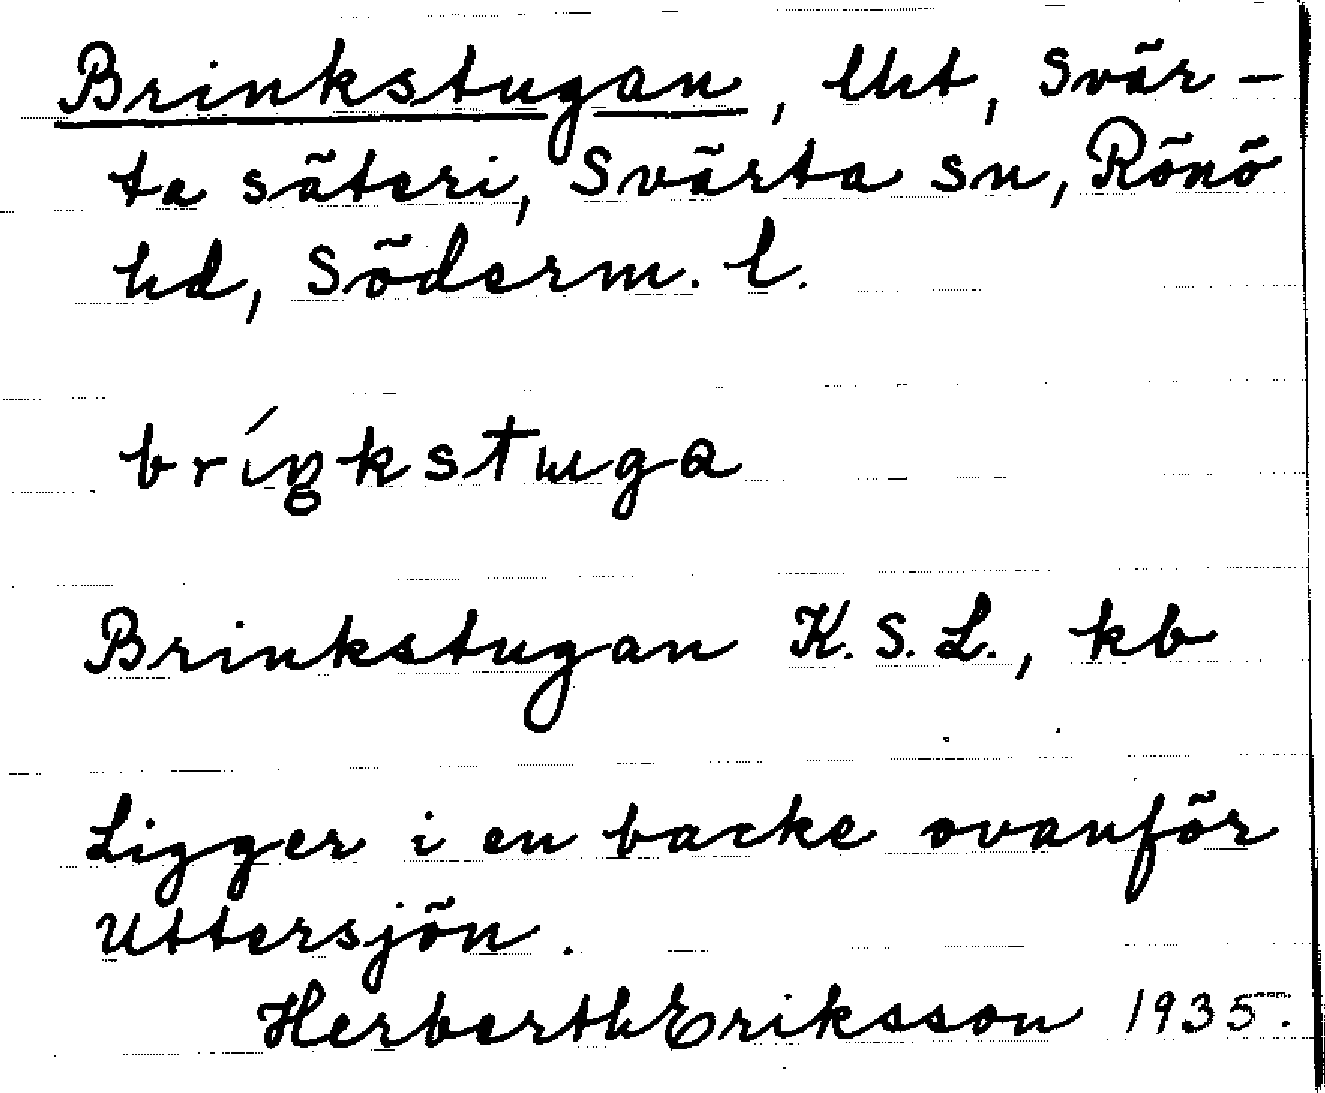 Brinkstugan, lht, Svär-
ta säteri, Svärta sn, Rönö
hd, Söderm. l.
bríŋkstuga
Brinkstugan K.S.L., kb
Ligger i en backe ovanför
Uttersjön.
Herberth Eriksson 1935.